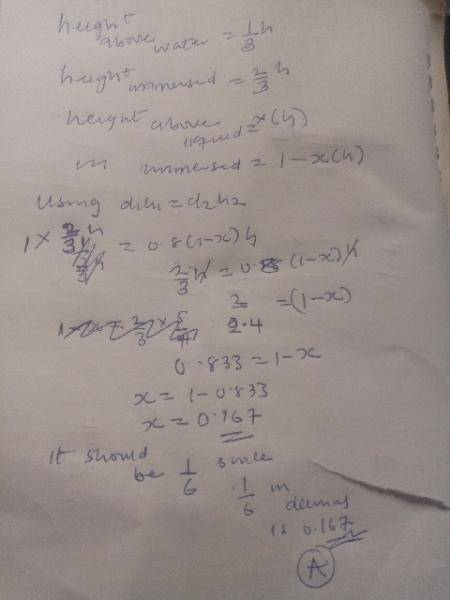 height above water = 1/3 h
height immersed = 2/3 h
height above liquid = x(h)
immersed = 1 - x(h)
Using d1h1 = d2h2
1 × 2/3 h = 0.8 (1-x) h
2/3 h = 0.8 (1-x) h
2/2.4 = (1-x)
0.833 = 1-x
x = 1 - 0.833
x = 0.167
It should be 1/6 since
1/6 in decimal
is 0.167
A